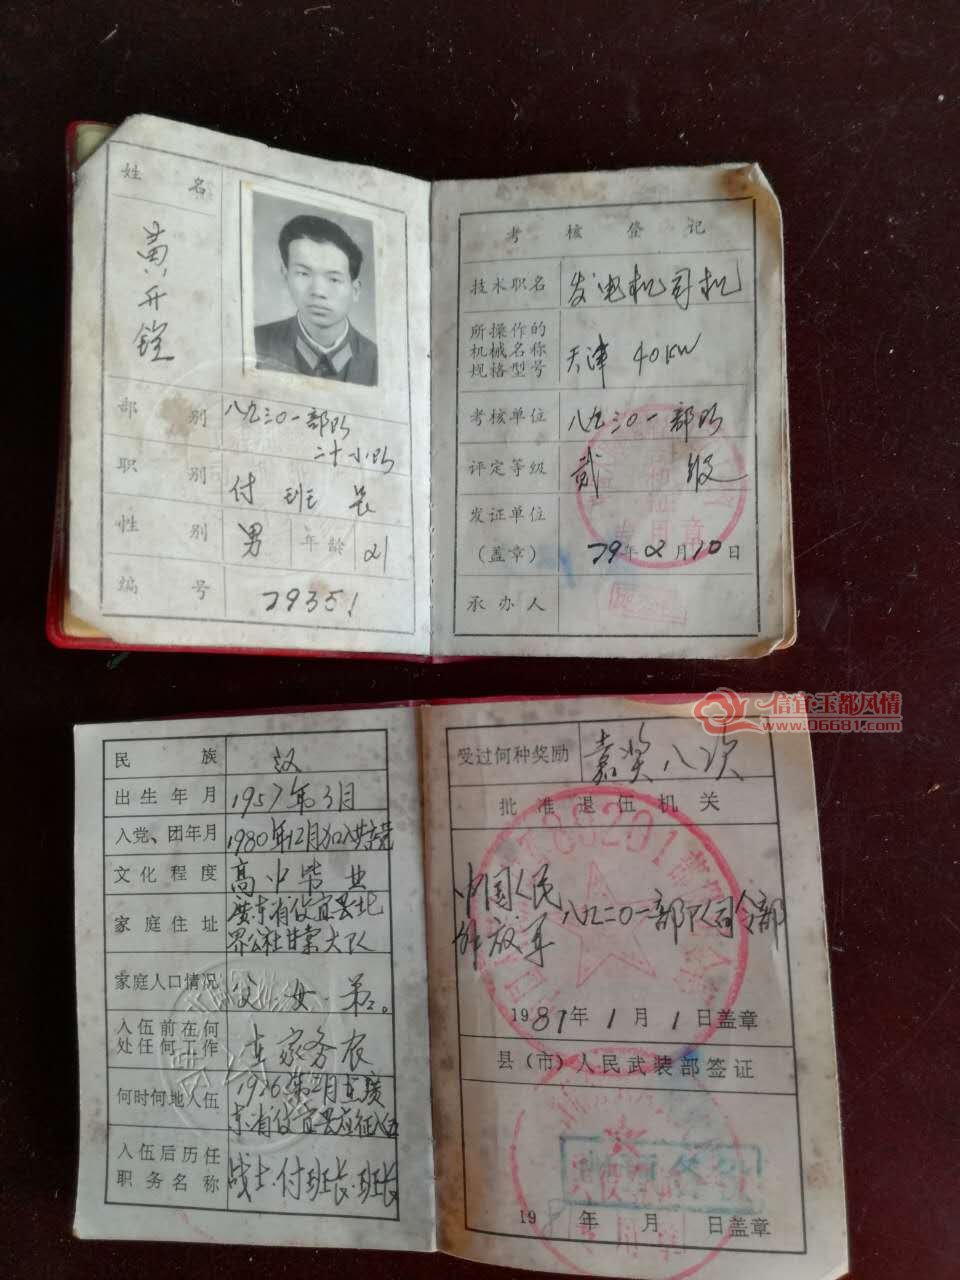 姓名
黄升镗
部别 八九三〇一部队
二十小队
职别 付班长
性别 男 年龄 21
编号 79351
考核登记
技术职名 发电机司机
所操作的
机械名称
规格型号
天津 40KW
考核单位 八九三〇一部队
评定等级 贰级
发证单位
(盖章)
79年2月10日
专用章
承办人
信宜·玉都风情
www.06681.com
民族 汉
出生年月 1957年3月
入党、团年月 1980年12月加入共产党
文化程度 高中毕业
家庭住址 广东省信宜县北
界公社甘棠大队
家庭人口情况 父 女 弟
入伍前在何
处任何工作
在家务农
何时何地入伍 1976年2月在广
东省信宜县应征入伍
入伍后历任
职务名称
战士.付班长.班长
受过何种奖励 嘉奖八次
批准退伍机关
中国人民
解放军
八九二〇一部队司令部
1981年1月1日盖章
县(市)人民武装部签证
198 年 月 日盖章